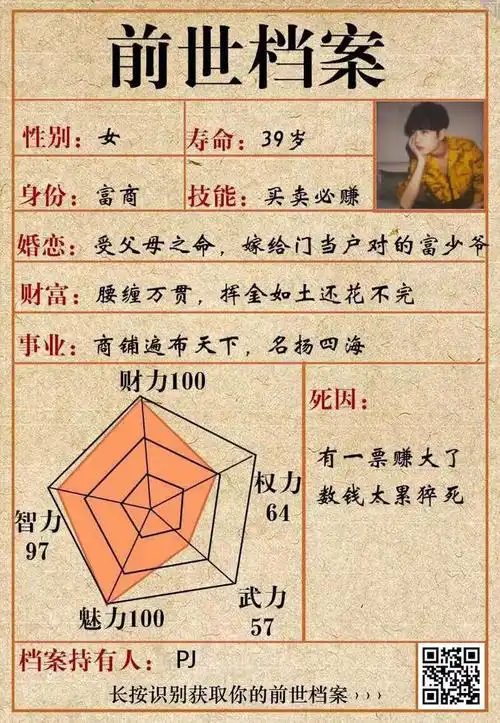 前世档案
性别：女
寿命：39岁
身份：富商
技能：买卖必赚
婚恋：受父母之命，嫁给门当户对的富少爷
财富：腰缠万贯，挥金如土还花不完
事业：商铺遍布天下，名扬四海
财力100
权力
64
武力
57
魅力100
智力
97
死因：
有一票赚大了
数钱太累猝死
档案持有人：PJ
长按识别获取你的前世档案›››